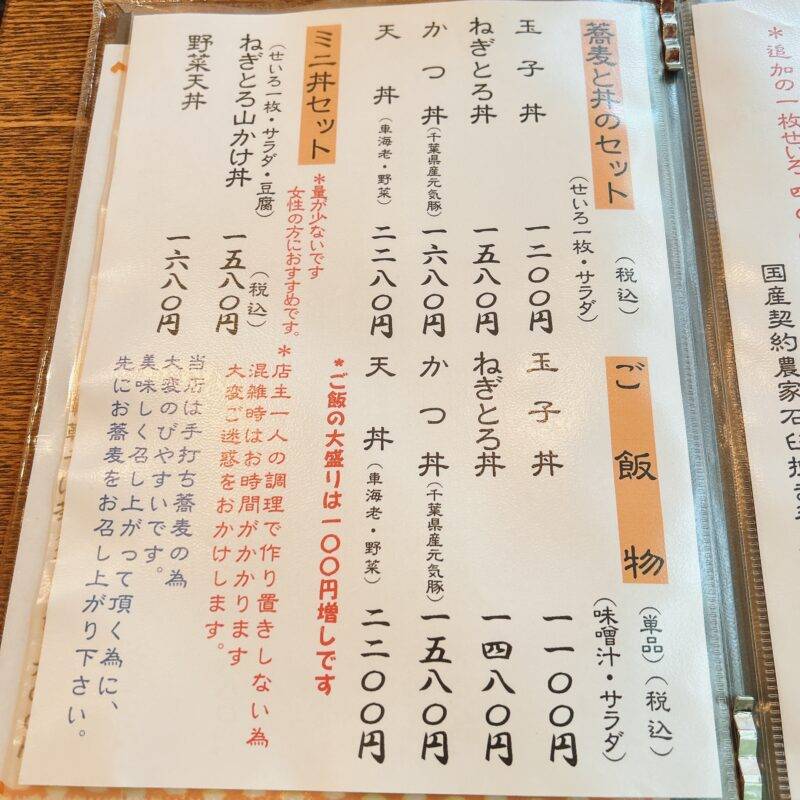 ＊追加の一枚せいろ
国産契約農家石臼挽き
蕎麦と丼のセット
(せいろ一枚・サラダ)
(税込)
玉子丼 一二〇〇円
ねぎとろ丼 一五八〇円
かつ丼(千葉県産元気豚) 一六八〇円
天丼(車海老・野菜) 二二八〇円
ミニ丼セット
＊量が少ないです
女性の方におすすめです。
(せいろ一枚・サラダ・豆腐)
(税込)
ねぎとろ山かけ丼 一五八〇円
野菜天丼 一六八〇円
ご飯物
(単品)(税込)
(味噌汁・サラダ)
玉子丼 一一〇〇円
ねぎとろ丼 一四八〇円
かつ丼(千葉県産元気豚) 一五八〇円
天丼(車海老・野菜) 二二〇〇円
＊ご飯の大盛りは一〇〇円増しです
＊店主一人の調理で作り置きしない為
混雑時はお時間がかかります
大変ご迷惑をおかけします。
当店は手打ち蕎麦の為
大変のびやすいです。
美味しく召し上がって頂く為に、
先にお蕎麦をお召し上がり下さい。